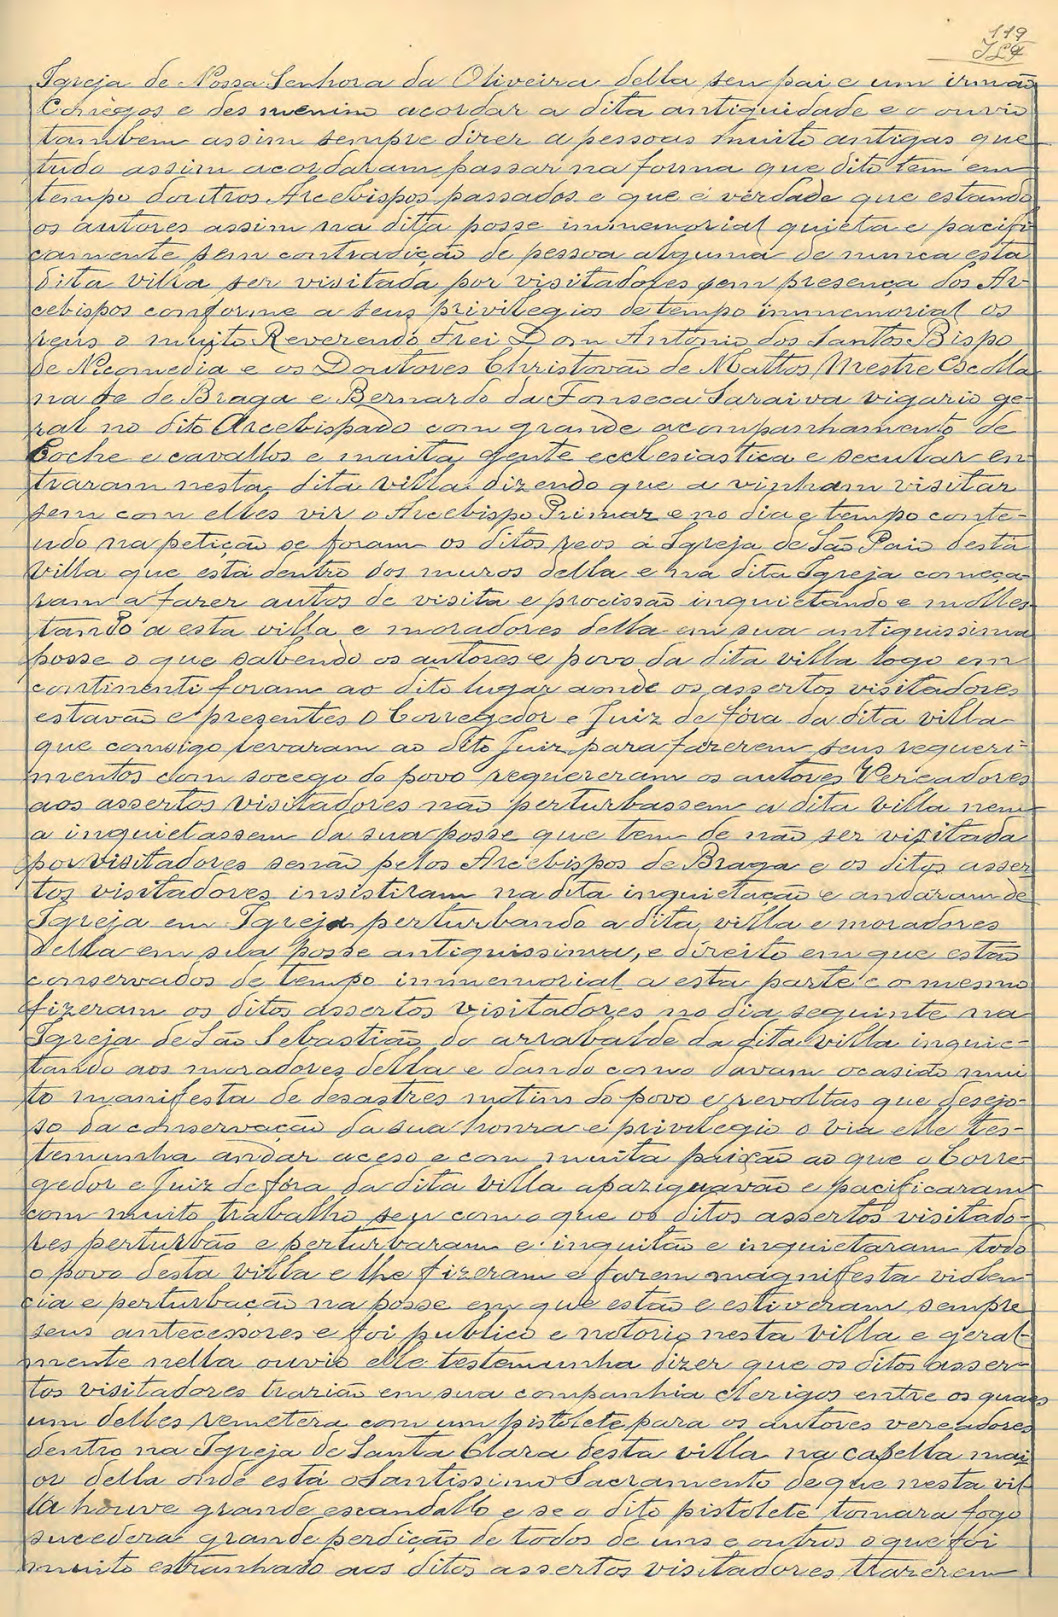 119
Igreja de Nossa Senhora da Oliveira della seu pai e um irmão
Conegos e des menino acordar a dita antiguidade e o ouvio
tambem assim sempre dizer a pessoas muito antigas que
tudo assim acordaram passar na forma que dito tem em
tempo doutros Arcebispos passados e que é verdade que estando
os autores assim na ditta posse immemorial quieta e pacifi
camente sem contradição de pessoa alguma de nunca esta
dita villa ser visitada por visitadores sem presença dos Ar-
cebispos conforme a seus privilegios de tempo immemorial os
reus o muito Reverendo Frei Dom Antonio dos Santos Bispo
de Nicomedia e os Doutores Christovão de Mattos Mestre Escolla
na Se de Braga e Bernardo da Fonseca Saraiva vigario ge-
ral no dito Arcebispado com grande acompanhamento de
Coche e cavallos e muita gente ecclesiastica e secular en
traram nesta dita villa dizendo que a vinham visitar
sem com elles vir o Arcebispo Primaz e no dia e tempo conte-
udo na petição se foram os ditos reos á Igreja de São Paio desta
villa que está dentro dos muros della e na dita Igreja começa-
ram a fazer autos de visita e procissão inquietando e molles-
tando a esta villa e moradores della em sua antiquissima
posse o que sabendo os autores e povo da dita villa logo em
continenti foram ao dito lugar aonde os assertos visitadores
estavão e presentes o Corregedor e Juiz de fóra da dita villa
que comsigo levaram ao dito Juiz para fazerem seus requeri-
mentos com socego do povo requereram os autores Vereadores
aos assertos visitadores não perturbassem a dita villa nem
a inquietassem da sua posse que tem de não ser visitada
por visitadores senão pelos Arcebispos de Braga e os ditos asser
tos visitadores insistiram na dita inquietação e andaram de
Igreja em Igreja perturbando a dita villa e moradores
della em sua posse antiquissima, e direito em que estão
conservados de tempo immemorial a esta parte e o mesmo
fizeram os ditos assertos visitadores no dia seguinte na
Igreja de São Sebastião do arrabalde da dita villa inquie-
tando aos moradores della e dando como davam ocasião mui
to manifesta de desastres motins do povo e revoltas que desejo-
so da conservação da sua honra e privilegio o via elle tes-
temunha andar aceso e com muita paixão ao que o Corre-
gedor e Juiz de fóra da dita villa apaziguavão e pacificaram
com muito trabalho seu com o que os ditos assertos visitado-
res perturbão e perturbaram e inquitão e inquietaram todo
o povo desta villa e lhe fizeram e fazem magnifesta violen-
cia e perturbação na posse em que estão e estiveram sempre
seus antecessores e foi publico e notorio nesta villa e geral-
mente nella ouvio elle testemunha dizer que os ditos asser-
tos visitadores trarião em sua companhia clerigos entre os quaes
um delles remetera com um pistolete para os autores vereadores
dentro na Igreja de Santa Clara desta villa na capella mai
or della onde está o Santissimo Sacramento de que nesta vil-
la houve grande escandallo e se o dito pistolete tomara fogo
sucedera grande perdição de todos de uns e outros o que foi
muito estranhado aos ditos assertos visitadores trazerem